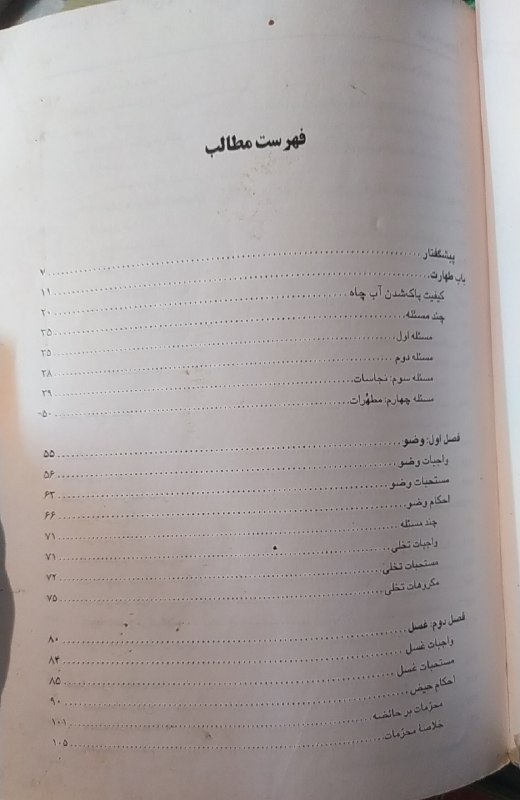 فهرست مطالب
پیشگفتار ........ ۷
باب طهارت ........ ۱۱
کیفیت پاک‌شدن آب چاه ........ ۲۰
چند مسئله ........ ۲۵
مسئله اول ........ ۲۵
مسئله دوم ........ ۲۸
مسئله سوم: نجاسات ........ ۳۹
مسئله چهارم: مطهّرات ........ ۵۰
فصل اول: وضو ........ ۵۵
واجبات وضو ........ ۵۶
مستحبات وضو ........ ۶۳
احکام وضو ........ ۶۶
چند مسئله ........ ۷۱
واجبات تخلی ........ ۷۱
مستحبات تخلی ........ ۷۲
مکروهات تخلی ........ ۷۵
فصل دوم: غسل ........ ۸۰
واجبات غسل ........ ۸۴
مستحبات غسل ........ ۸۵
احکام حیض ........ ۹۰
محرّمات بر حائضه ........ ۱۰۱
خلاصهٔ محرّمات ........ ۱۰۵